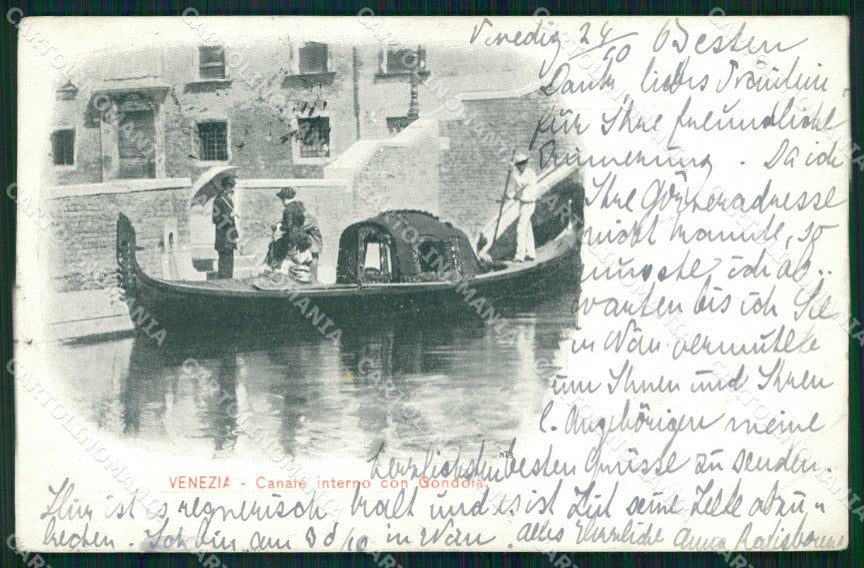 Venedig 24/10 Besten
Dank, liebes Fräulein,
für Ihre freundliche
Erinnerung. Da ich
Ihre Görzeradresse
nicht kannte, so
musste ich ab-
warten bis ich Sie
in Wien vermutete
um Ihnen und Ihren
l. Angehörigen meine
herzlichsten besten Grüsse zu senden.
VENEZIA - Canale interno con Gondola.
Hier ist es regnerisch kalt und es ist Zeit seine Zelte abzu-
brechen. Ich bin am 30/10 in Wien. Alles Herzliche Anna
CARTOLINOMANIA